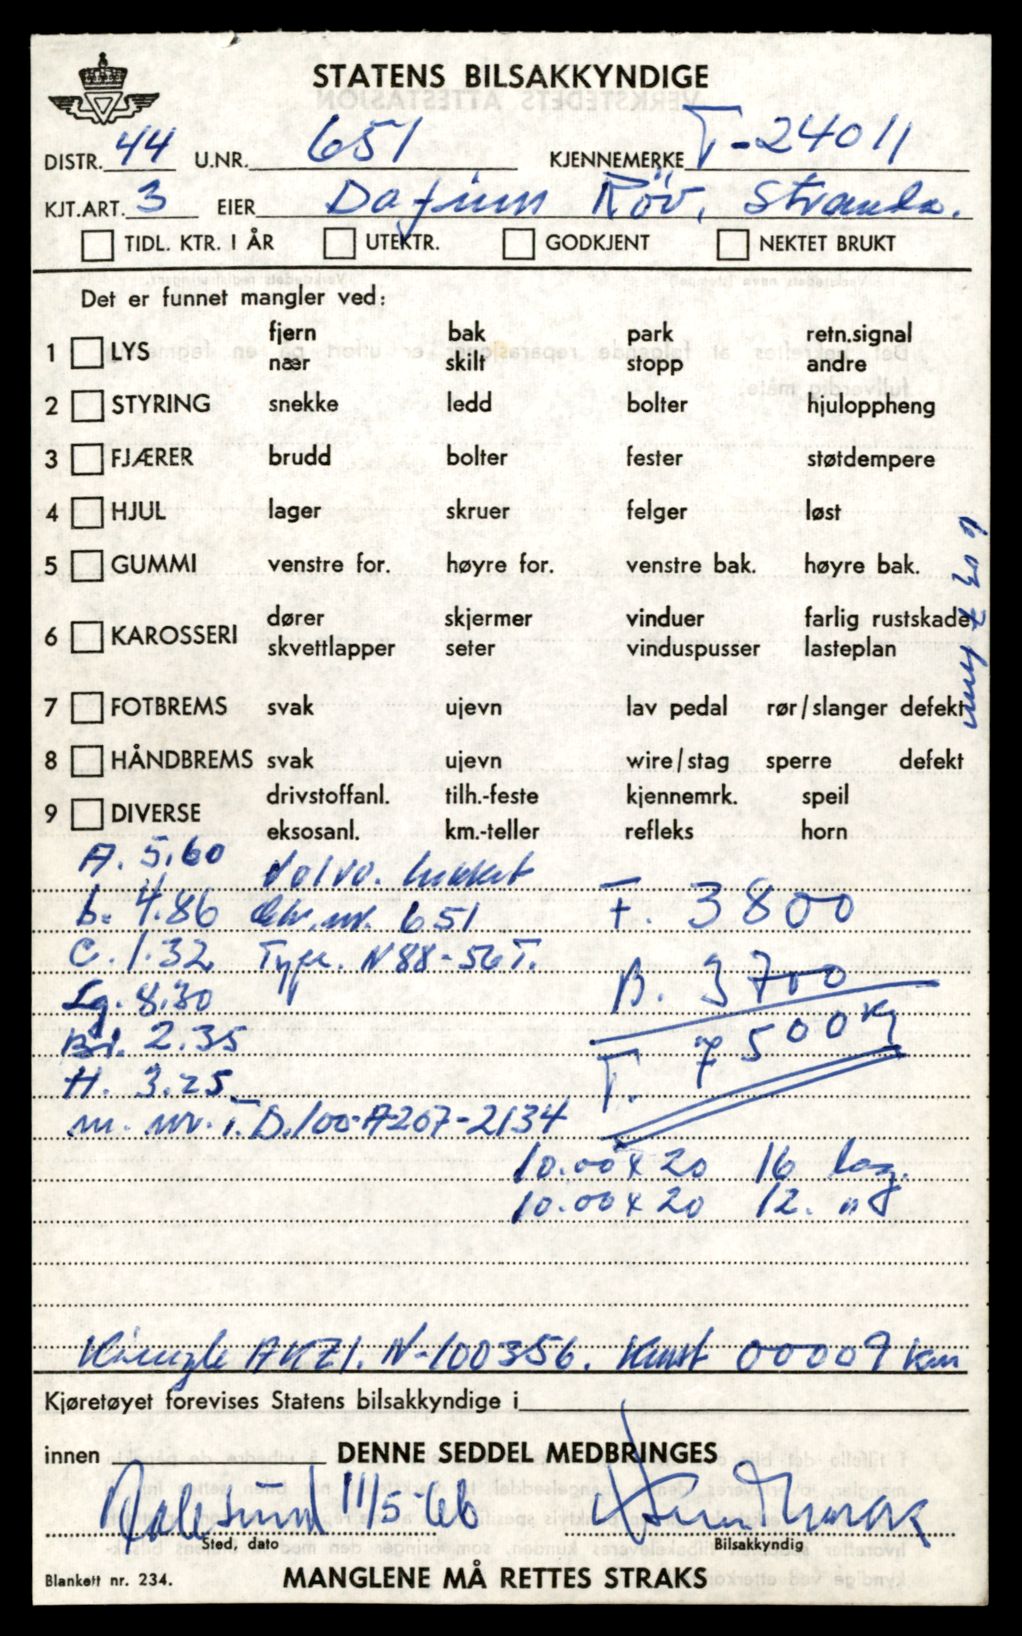 STATENS BILSAKKYNDIGE
DISTR. 44 U.NR. 651 KJENNEMERKE T-24011
KJT.ART. 3 EIER Dafinn Röv, Stranda.
TIDL. KTR. I ÅR UTEKTR. GODKJENT NEKTET BRUKT
Det er funnet mangler ved:
fjern bak park retn.signal
1 LYS
nær skilt stopp andre
2 STYRING snekke ledd bolter hjuloppheng
3 FJÆRER brudd bolter fester støtdempere
4 HJUL lager skruer felger løst
5 GUMMI venstre for. høyre for. venstre bak. høyre bak.
dører skjermer vinduer farlig rustskade
6 KAROSSERI
skvettlapper seter vinduspusser lasteplan
7 FOTBREMS svak ujevn lav pedal rør/slanger defekt
8 HÅNDBREMS svak ujevn wire/stag sperre defekt
drivstoffanl. tilh.-feste kjennemrk. speil
9 DIVERSE
eksosanl. km.-teller refleks horn
A. 5.60 Volvo. lukket
b. 4.86 chr.nr. 651 F. 3800
C. 1.32 Type. N88-56T.
B. 3700
Lg. 8.30
T. 7500 kg
Br. 2.35
H. 3.25
m. nr. T.D.100-A207-2134
10.00 x 20 16 lag.
10.00 x 20 12. "
Kienzle AKZ1. N-100356. Kmst 00009 km
Kjøretøyet forevises Statens bilsakkyndige i
innen DENNE SEDDEL MEDBRINGES
Aalesund 11/5-66
Sted, dato Bilsakkyndig
Blankett nr. 234. MANGLENE MÅ RETTES STRAKS